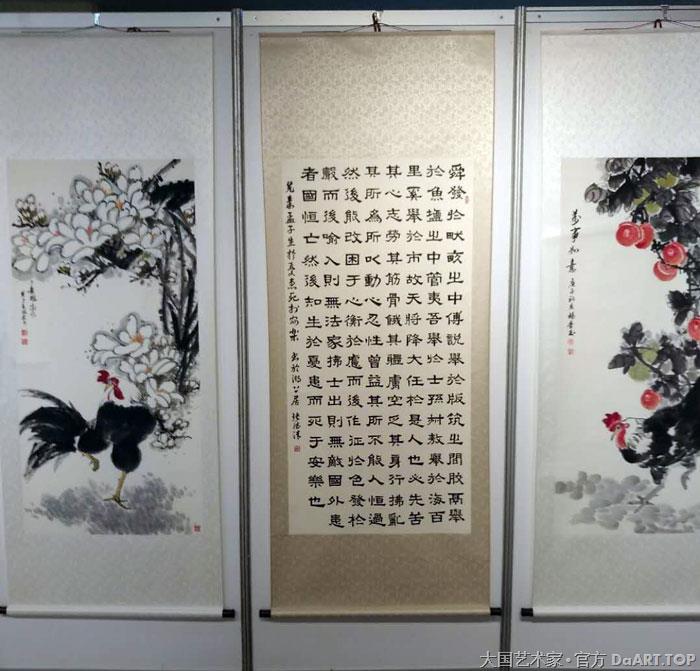 舜發於畎畝之中傅說舉於版筑之間膠鬲舉
於魚鹽之中管夷吾舉於士孫叔敖舉於海百
里奚舉於市故天將降大任於是人也必先苦
其心志勞其筋骨餓其體膚空乏其身行拂亂
其所為所以動心忍性曾益其所不能人恒過
然後能改困于心衡於慮而後作征於色發於
聲而後喻入則無法家拂士出則無敵國外患
者國恒亡然後知生於憂患而死于安樂也
孟子生於憂患死於安樂
萬事如意
大国艺术家·官方 DaART.TOP